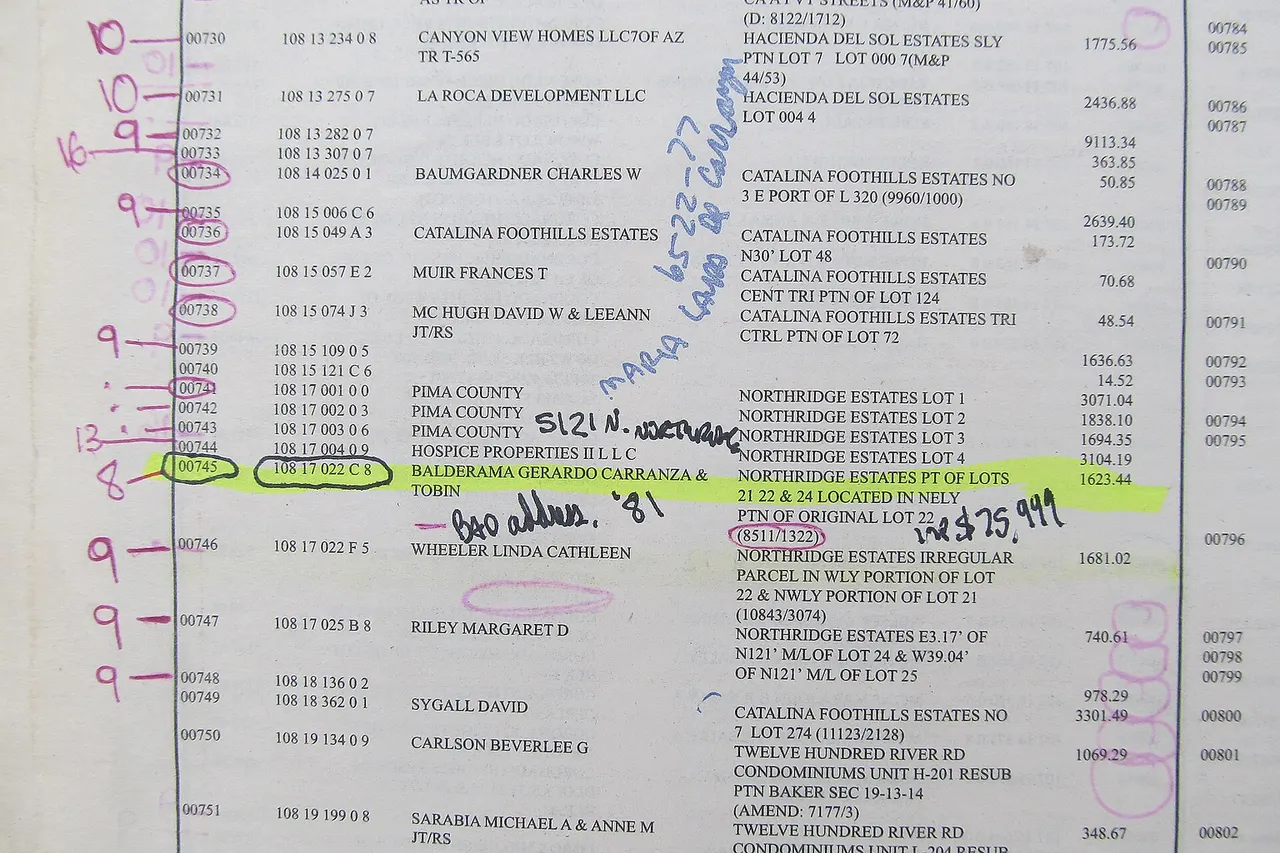 AS TR OF
CA A I VI STREETS (M&P 41/60)
(D: 8122/1712)
00784
10 00730 108 13 234 0 8 CANYON VIEW HOMES LLC7OF AZ HACIENDA DEL SOL ESTATES SLY 1775.56 00785
TR T-565 PTN LOT 7 LOT 000 7(M&P
44/53)
10 00731 108 13 275 0 7 LA ROCA DEVELOPMENT LLC HACIENDA DEL SOL ESTATES 2436.88 00786
LOT 004 4 00787
9 00732 108 13 282 0 7 9113.34
16 00733 108 13 307 0 7 363.85
00734 108 14 025 0 1 BAUMGARDNER CHARLES W CATALINA FOOTHILLS ESTATES NO 50.85 00788
3 E PORT OF L 320 (9960/1000) 00789
9 00735 108 15 006 C 6 2639.40
00736 108 15 049 A 3 CATALINA FOOTHILLS ESTATES CATALINA FOOTHILLS ESTATES 173.72
N30' LOT 48 00790
00737 108 15 057 E 2 MUIR FRANCES T CATALINA FOOTHILLS ESTATES 70.68
CENT TRI PTN OF LOT 124
00738 108 15 074 J 3 MC HUGH DAVID W & LEEANN CATALINA FOOTHILLS ESTATES TRI 48.54 00791
JT/RS CTRL PTN OF LOT 72
6522-77
MARIA
9 00739 108 15 109 0 5 1636.63 00792
00740 108 15 121 C 6 14.52 00793
00741 108 17 001 0 0 PIMA COUNTY NORTHRIDGE ESTATES LOT 1 3071.04
00742 108 17 002 0 3 PIMA COUNTY NORTHRIDGE ESTATES LOT 2 1838.10 00794
00743 108 17 003 0 6 PIMA COUNTY NORTHRIDGE ESTATES LOT 3 1694.35 00795
5121 N. NORTHRIDGE
13 00744 108 17 004 0 9 HOSPICE PROPERTIES II L L C NORTHRIDGE ESTATES LOT 4 3104.19
8 00745 108 17 022 C 8 BALDERAMA GERARDO CARRANZA & NORTHRIDGE ESTATES PT OF LOTS 1623.44
TOBIN 21 22 & 24 LOCATED IN NELY
PTN OF ORIGINAL LOT 22
BAD address. '81 $75,999
(8511/1322) 00796
9 00746 108 17 022 F 5 WHEELER LINDA CATHLEEN NORTHRIDGE ESTATES IRREGULAR 1681.02
PARCEL IN WLY PORTION OF LOT
22 & NWLY PORTION OF LOT 21
(10843/3074)
9 00747 108 17 025 B 8 RILEY MARGARET D NORTHRIDGE ESTATES E3.17' OF 740.61 00797
N121' M/LOF LOT 24 & W39.04' 00798
OF N121' M/L OF LOT 25 00799
9 00748 108 18 136 0 2 978.29
00749 108 18 362 0 1 SYGALL DAVID CATALINA FOOTHILLS ESTATES NO 3301.49 00800
7 LOT 274 (11123/2128)
00750 108 19 134 0 9 CARLSON BEVERLEE G TWELVE HUNDRED RIVER RD 1069.29 00801
CONDOMINIUMS UNIT H-201 RESUB
PTN BAKER SEC 19-13-14
(AMEND: 7177/3)
00751 108 19 199 0 8 SARABIA MICHAEL A & ANNE M TWELVE HUNDRED RIVER RD 348.67 00802
JT/RS CONDOMINIUMS UNIT L-204 RESUB